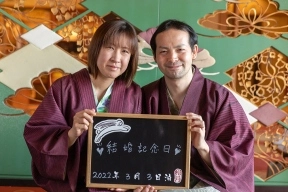 結婚記念日
2022年 3月 3日 泊